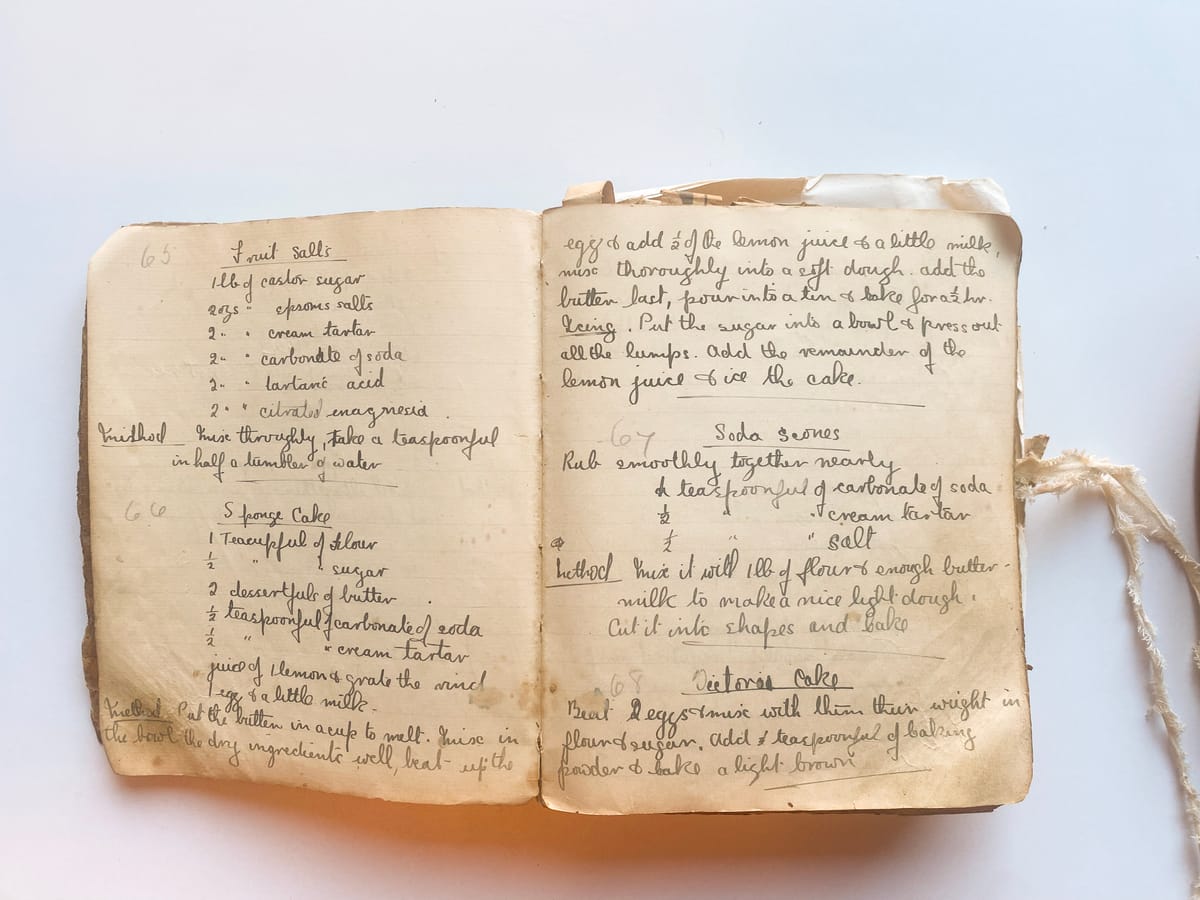 65
Fruit Salts
1 lb of castor sugar
2 ozs " epsoms salts
2 " " cream tartar
2 " " carbonate of soda
2 " " tartaric acid
2 " " citrated magnesia.
Method Mix throughly, Take a teaspoonful
in half a tumbler of water
66
Sponge Cake
1 Teacupful of flour
½ " " sugar
2 dessertfuls of butter
½ teaspoonful of carbonate of soda
½ " " cream tartar
juice of 1 lemon & grate the rind
1 egg & a little milk.
Method Put the butter in a cup to melt. Mix in
the bowl the dry ingredients well, beat up the
egg & add ½ of the lemon juice & a little milk,
mix thoroughly into a soft dough. add the
butter last, pour into a tin & bake for a ½ hr.
Icing. Put the sugar into a bowl & press out
all the lumps. Add the remainder of the
lemon juice & ice the cake.
67
Soda Scones
Rub smoothly together nearly
teaspoonful of carbonate of soda
½ " " cream tartar
½ " " salt
Method Mix it with 1 lb of flour & enough butter-
milk to make a nice light dough.
Cut it into shapes and bake
68
Victoria Cake
Beat 2 eggs & mix with them their wright in
flour & sugar. Add teaspoonful of baking
powder & bake a light brown